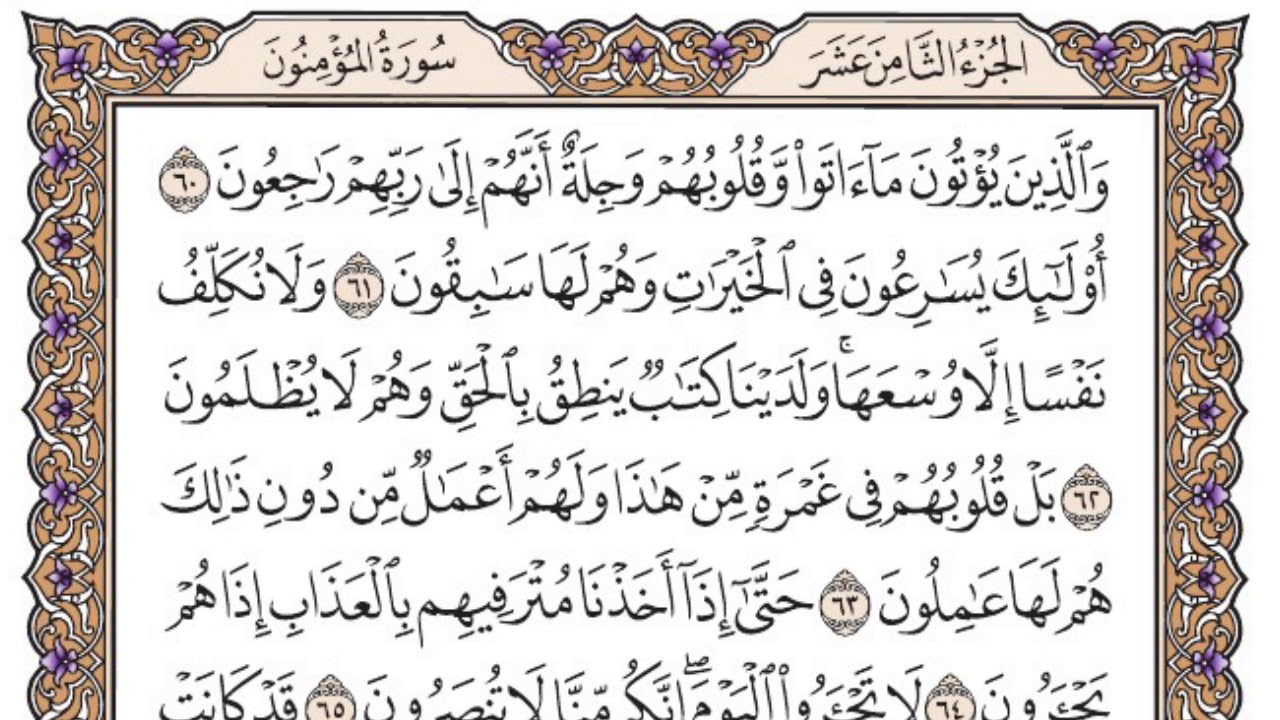 الجُزْءُ الثَّامِنَ عَشَرَ
سُورَةُ المُؤْمِنُونَ
وَٱلَّذِينَ يُؤْتُونَ مَآ ءَاتَوا۟ وَّقُلُوبُهُمْ وَجِلَةٌ أَنَّهُمْ إِلَىٰ رَبِّهِمْ رَٰجِعُونَ ٦٠
أُو۟لَـٰٓئِكَ يُسَـٰرِعُونَ فِى ٱلْخَيْرَٰتِ وَهُمْ لَهَا سَـٰبِقُونَ ٦١ وَلَا نُكَلِّفُ
نَفْسًا إِلَّا وُسْعَهَا ۚ وَلَدَيْنَا كِتَـٰبٌ يَنطِقُ بِٱلْحَقِّ وَهُمْ لَا يُظْلَمُونَ
٦٢ بَلْ قُلُوبُهُمْ فِى غَمْرَةٍ مِّنْ هَـٰذَا وَلَهُمْ أَعْمَـٰلٌ مِّن دُونِ ذَٰلِكَ
هُمْ لَهَا عَـٰمِلُونَ ٦٣ حَتَّىٰٓ إِذَآ أَخَذْنَا مُتْرَفِيهِم بِٱلْعَذَابِ إِذَا هُمْ
يَجْـَٔرُونَ ٦٤ لَا تَجْـَٔرُوا۟ ٱلْيَوْمَ ۖ إِنَّكُم مِّنَّا لَا تُنصَرُونَ ٦٥ قَدْ كَانَتْ